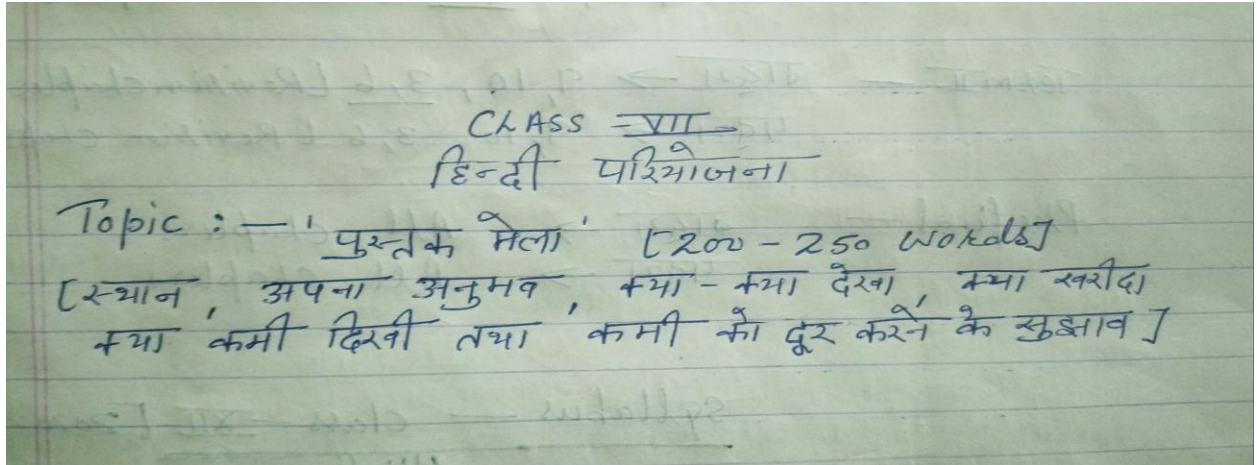 CLASS - VII
हिन्दी परियोजना
Topic : - 'पुस्तक मेला' [200 - 250 Words]
[स्थान, अपना अनुभव, क्या - क्या देखा, क्या खरीदा
क्या कमी दिखी तथा कमी को दूर करने के सुझाव]